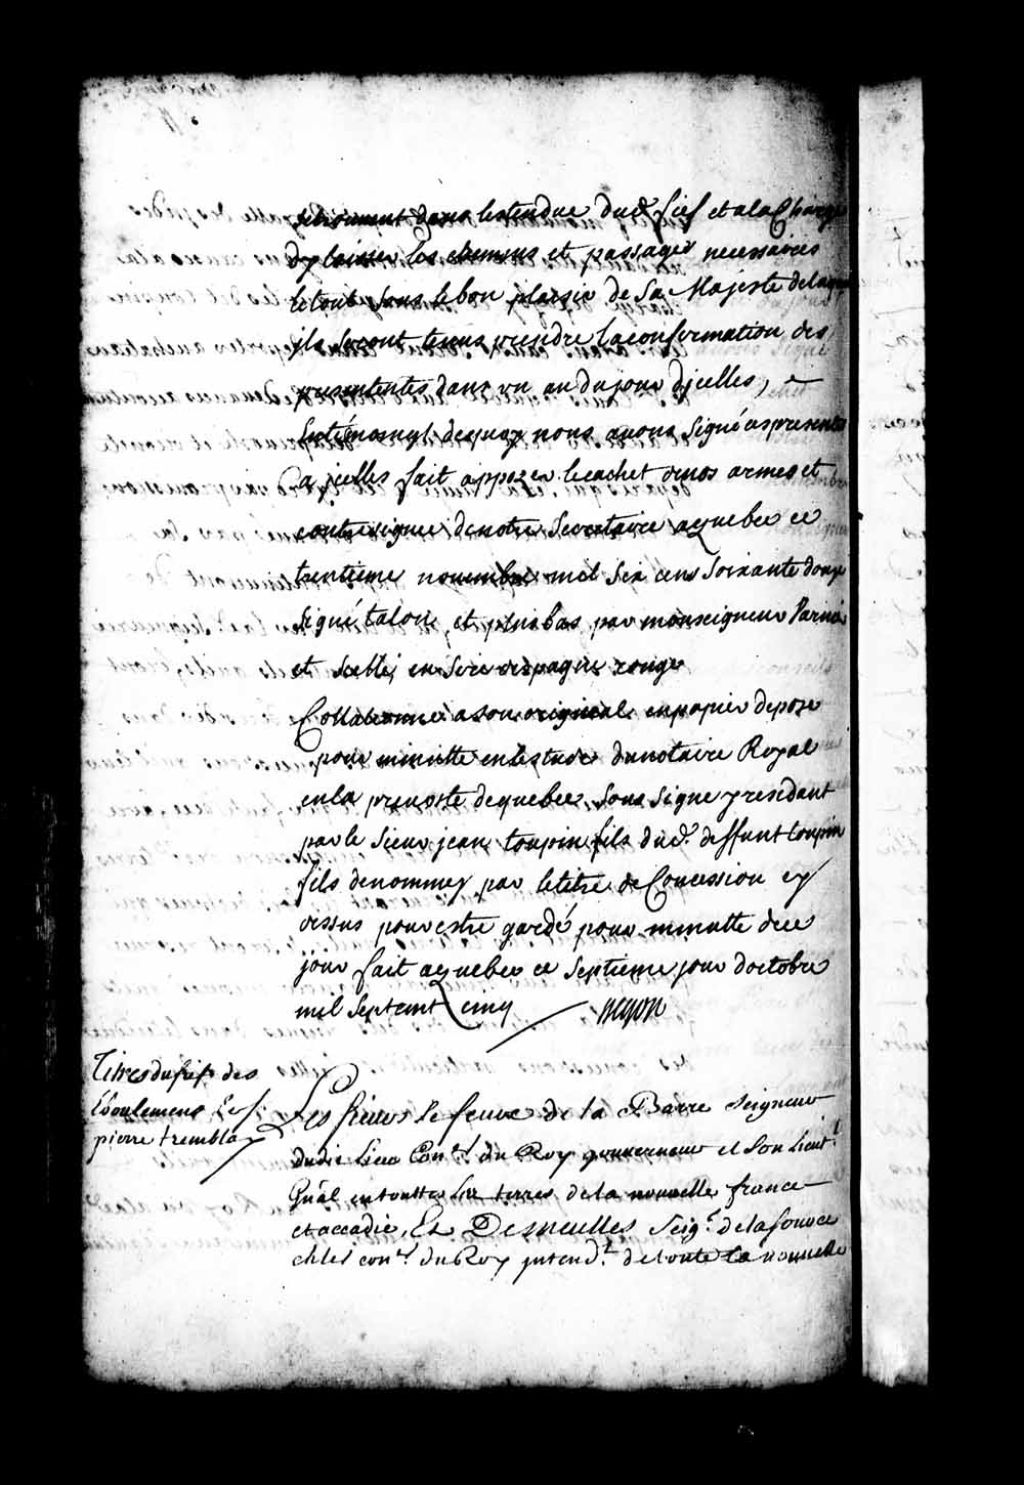 dans lestendue dud. fief et ala Charge
dy laisser les chemins et passages necessaires
le tout sous le bon plaisir de Sa Majesté
ils seront tenus prendre la confirmation des
presentes dans un an du jour dicelles,
dequoy nous avons signé
a jcelles fait apposer le cachet denos armes et
contresigner denotre Secretaire a quebec ce
trentieme novembre mil six cens Soixante douze
Signé talon, et plus bas par monseigneur Varnier
et Scellé en Sire despagne rouge
Collationné a son original en papier deposé
pour minutte en lestude du notaire Royal
en la prevosté dequebec, Sous Signé y residant
par le Sieur jean toupin fils dud. deffunt toupin
fils denommez par le titre de Concession cy
dessus pour estre gardé pour minutte de ce
jour fait a quebec ce Septieme jour doctobre
mil Septcent cinq
Titres du fief des
Eboulemens
pierre tremblay
Les Sieurs lefeuvre de la Barre Seigneur
dudit Lieu Con.er du Roy gouverneur et Son Lieut.t
Gñal en touttes Les terres de la nouvelle france
et accadie, Et Demeulles Seig.r de la source
ch.let con.er du Roy jntend.t de toute la nouvelle